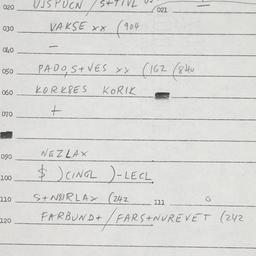 020 021
030 VAKSE xx (904
040 —
050 PADO,S+VES xx (162 (840
060 KORKEES KORIK
070 +
090 NEZLAX
100 $ )CINGL )-LECL
110 S+NØIRLAX (242 111
120 FARBUND+/FARS+NUREVET (242